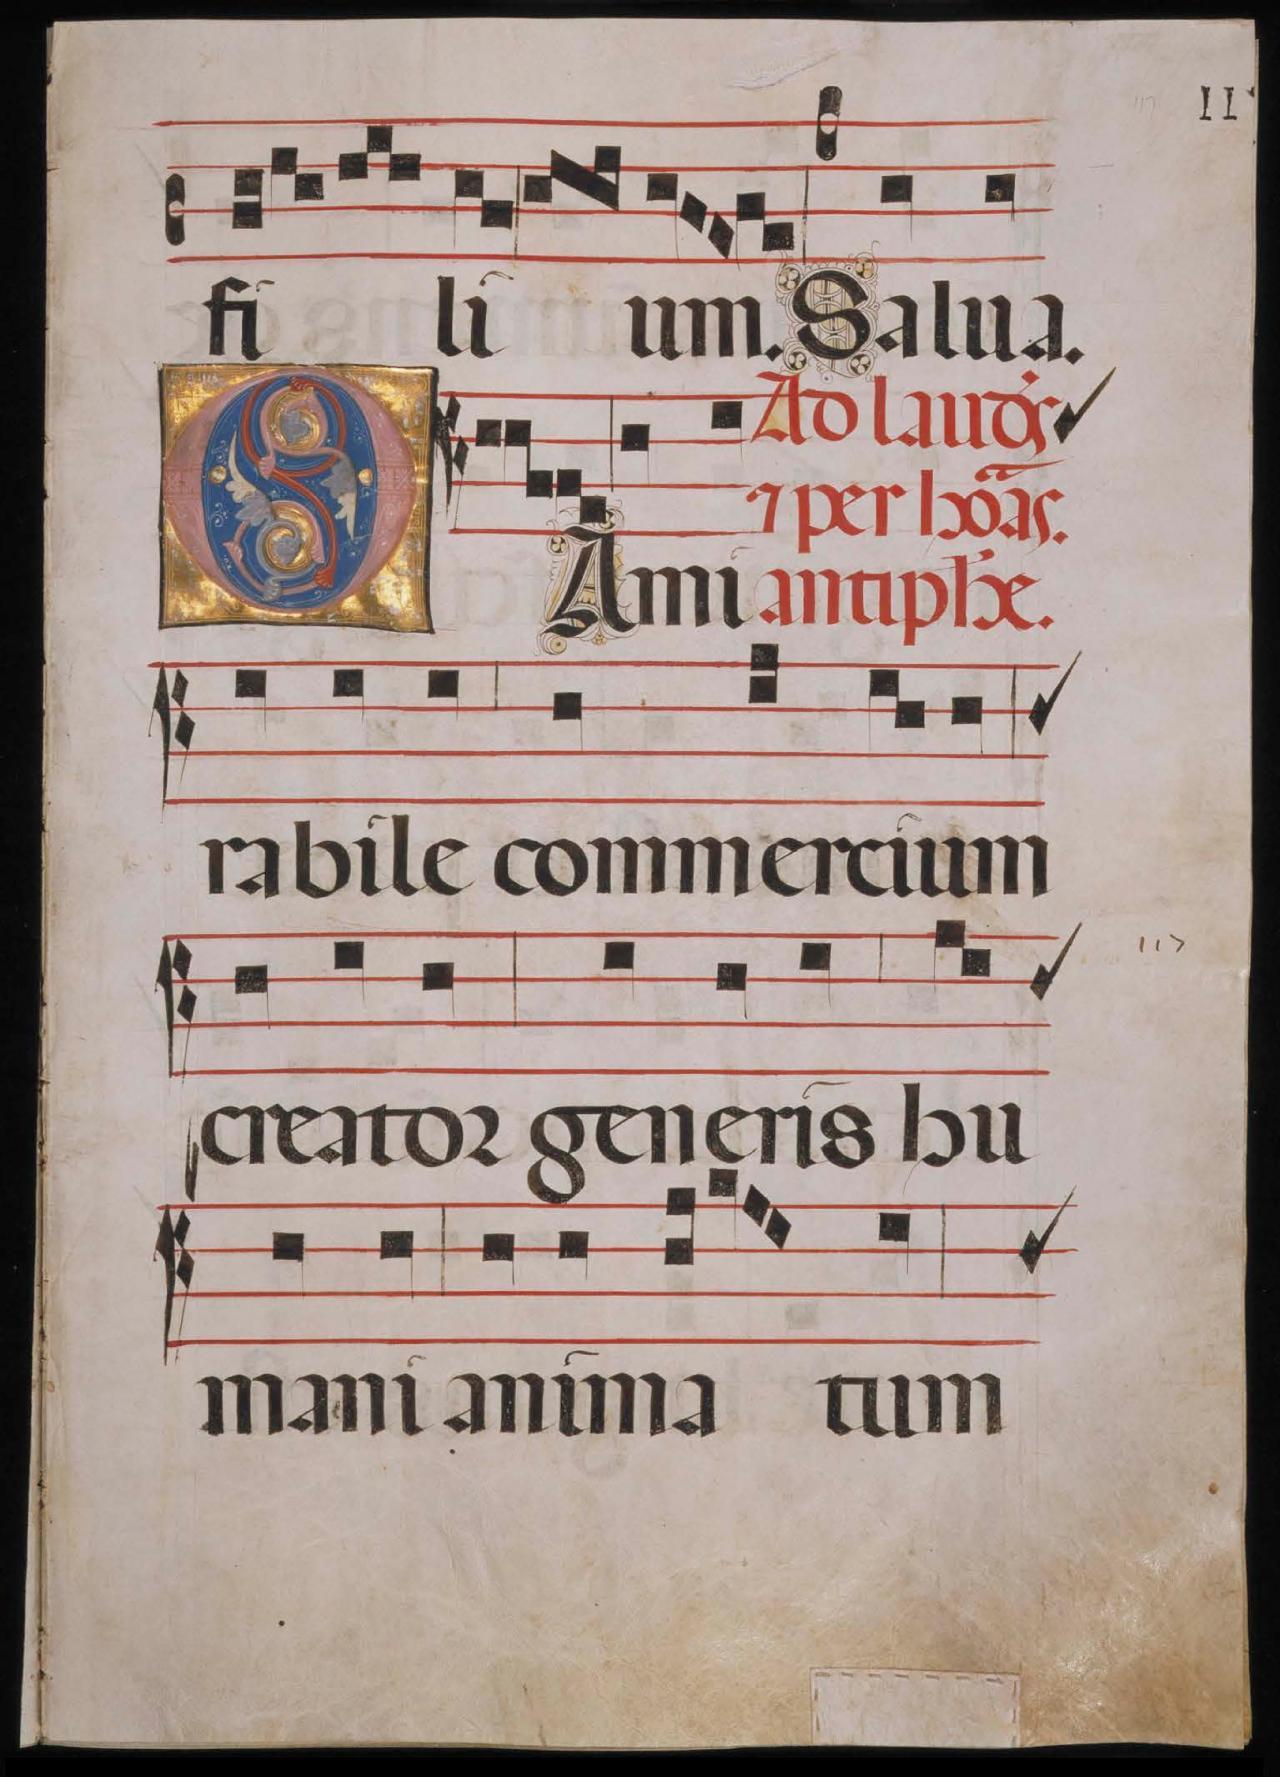 II
fi li um. Salua.
O Ami
Ad laud's
⁊ per ho̅as.
antiphe.
rabile commercium
117
creator generis hu
mani anima tum